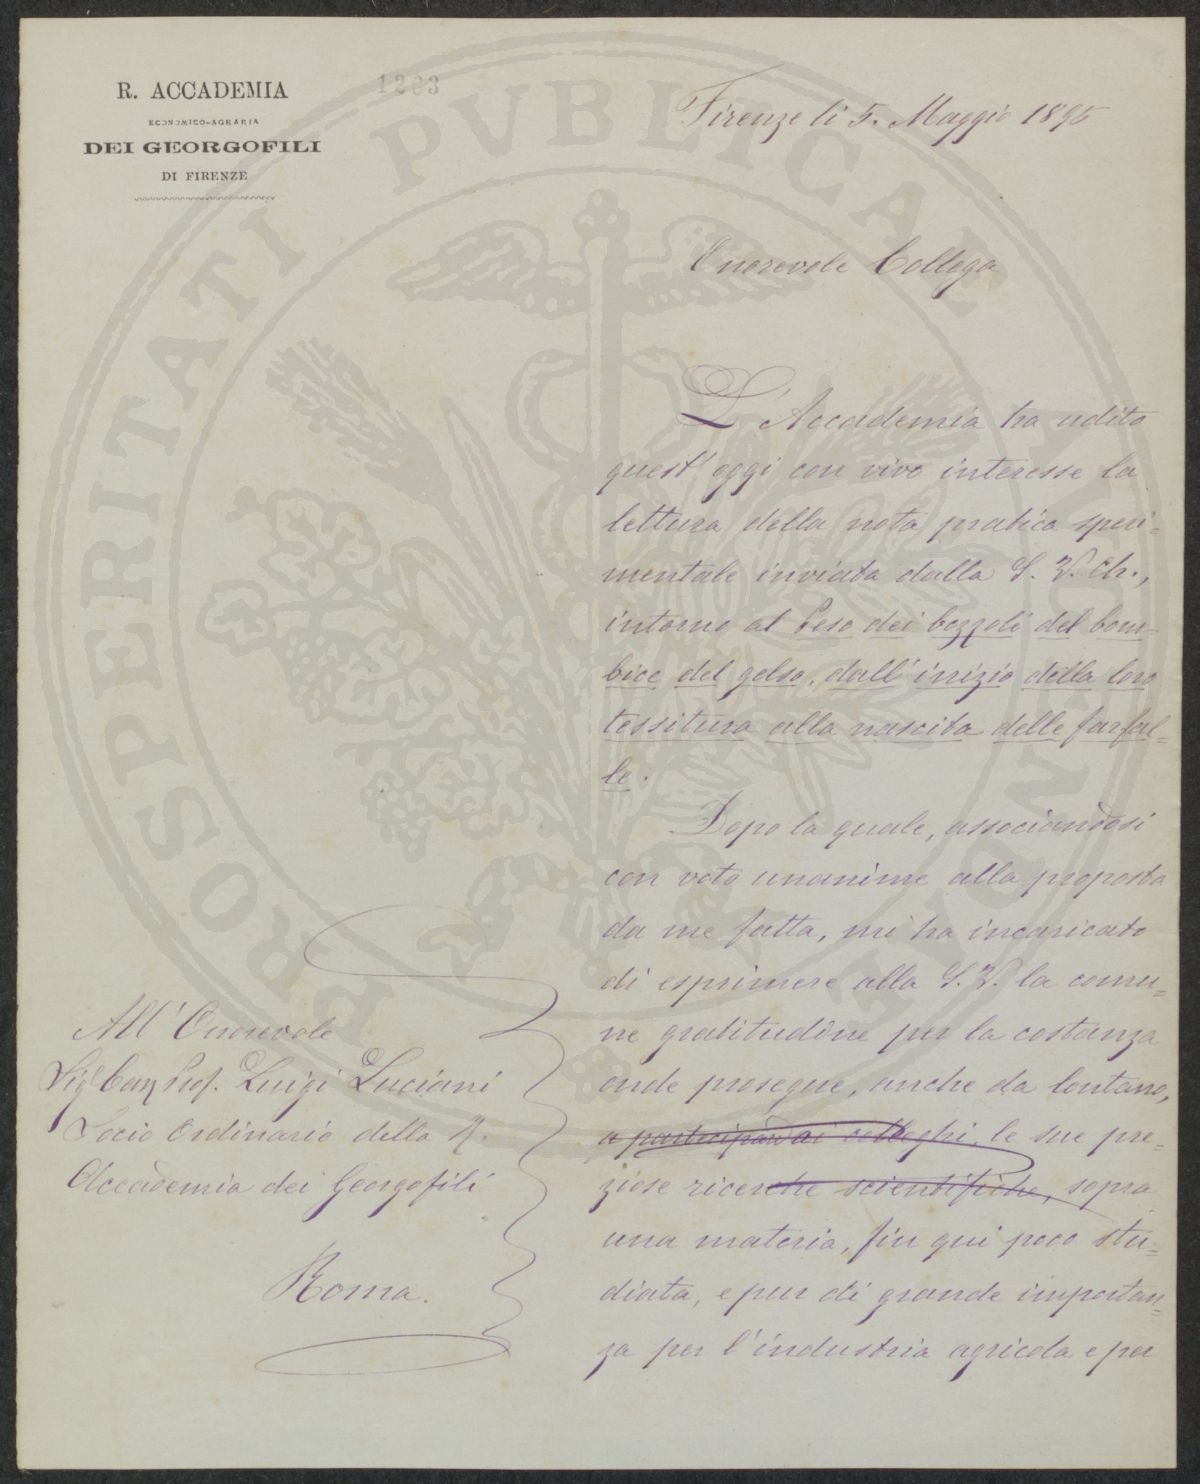 R. ACCADEMIA
ECONOMICO-AGRARIA
DEI GEORGOFILI
DI FIRENZE
1203
Firenze li 5. Maggio 1895
Onorevole Collega
L'Accademia ha udito
quest'oggi con vivo interesse la
lettura della nota pratica speri-
mentale inviata dalla S. V. Ch.,
intorno al Peso dei bozzoli del bom-
bice del gelso, dall'inizio della loro
tessitura alla nascita delle farfal-
le.
Dopo la quale, associandosi
con voto unanime alla proposta
da me fatta, mi ha incaricato
di esprimere alla S. V. la comu-
ne gratitudine per la costanza
onde prosegue, anche da lontano,
a partecipare ai colleghi, le sue pre-
ziose ricerche scientifiche, sopra
una materia, fin qui poco stu-
diata, e pur di grande importan-
za per l'industria agricola e per
All'Onorevole
Sigr Cav Prof. Luigi Luciani
Socio Ordinario della R.
Accademia dei Georgofili
Roma.
PROSPERITATI PVBLICAE AVGENDAE